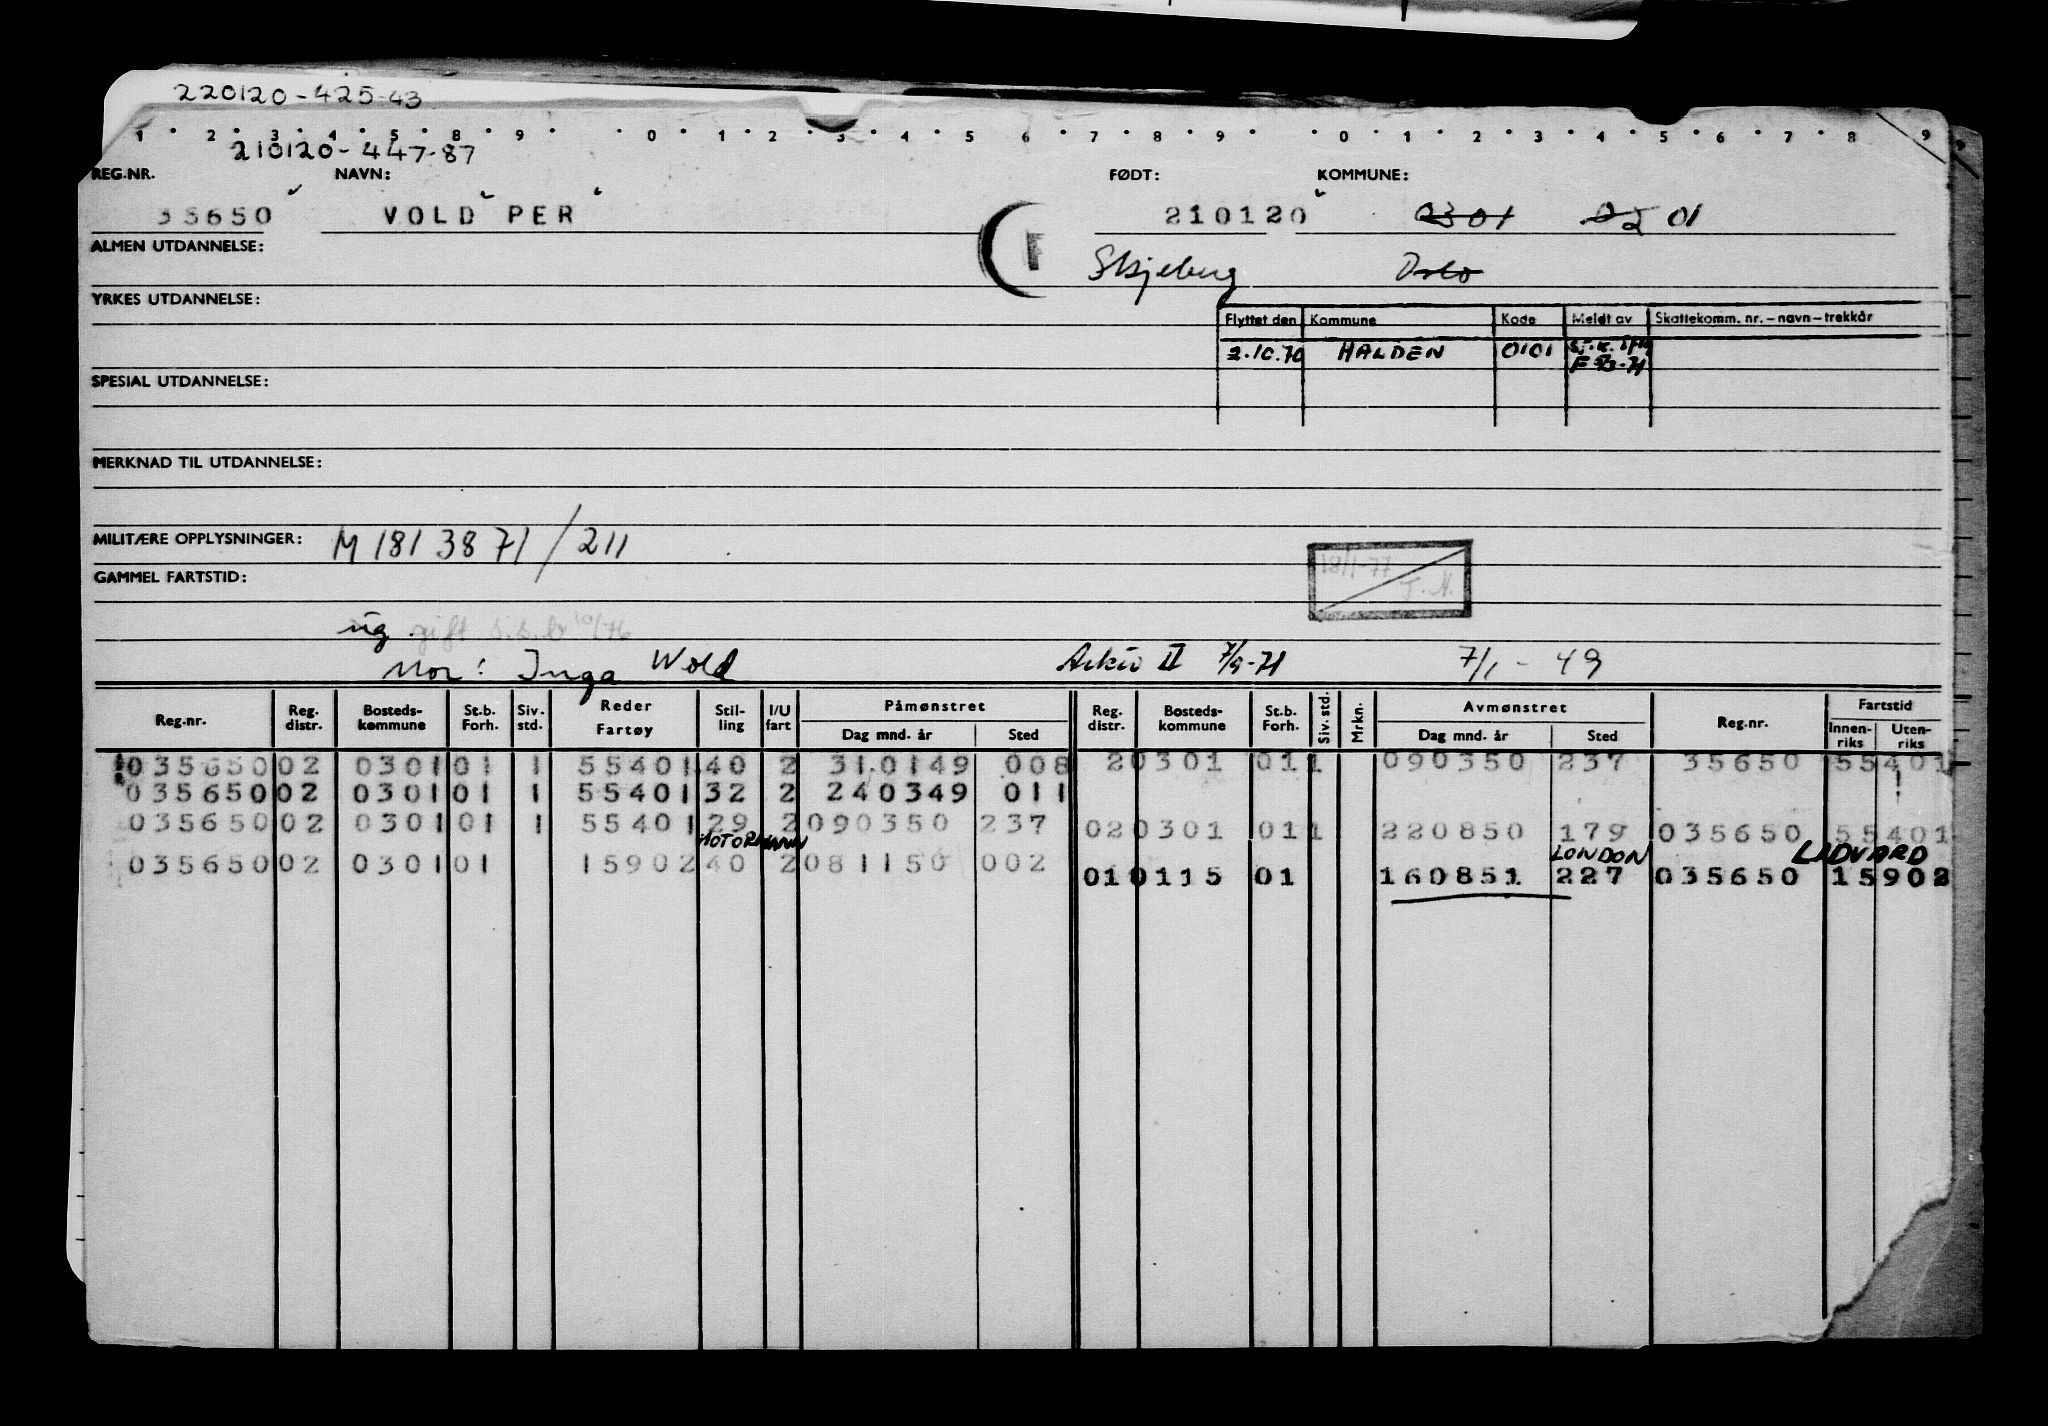 220120-425-43
1 2 3 4 5 8 9 0 1 2 3 4 5 6 7 8 9 0 1 2 3 4 5 6 7 8 9
210120-447-87
REG.NR. NAVN: FØDT: KOMMUNE:
35650 VOLD PER 210120 2301 02 01
F
ALMEN UTDANNELSE: Skjeberg Oslo
YRKES UTDANNELSE:
Flyttet den Kommune Kode Meldt av Skattekomm. nr. – navn – trekkår
2.10.70 HALDEN 0101
SPESIAL UTDANNELSE:
MERKNAD TIL UTDANNELSE:
MILITÆRE OPPLYSNINGER: M 181 38 71/211
18/1-77 T.N.
GAMMEL FARTSTID:
ug. gift s.s.b 10/76
Mor: Inga Wold Arkiv II 7/9-71 7/1-49
Reg.nr. Reg. distr. Bosteds-kommune St.b. Forh. Siv. std. Reder Fartøy Stil-ling I/U fart Påmønstret Dag mnd. år Sted Reg. distr. Bosteds-kommune St.b. Forh. Siv. std. Mrkn. Avmønstret Dag mnd. år Sted Reg.nr. Fartstid Innen-riks Uten-riks
035650 02 0301 01 1 55401 40 2 310149 008 2 0301 01 1 090350 237 35650 55401
035650 02 0301 01 1 55401 32 2 240349 011
035650 02 0301 01 1 55401 29 2 090350 237 02 0301 01 1 220850 179 035650 55401
MOTORMANN LONDON LIDVARD
035650 02 0301 01 15902 40 2 081150 002 01 0115 01 160851 227 035650 15902